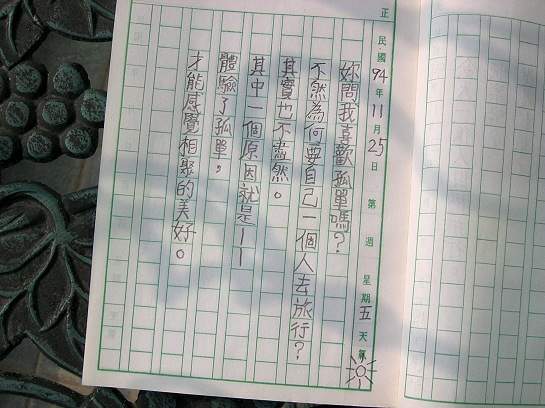 正
民國94年11月25日 第 週 星期五 天氣
妳問我喜歡孤單嗎？
不然為何要自己一個人去旅行？
其實也不盡然。
其中一個原因就是——
體驗了孤單，
才能感覺相聚的美好。